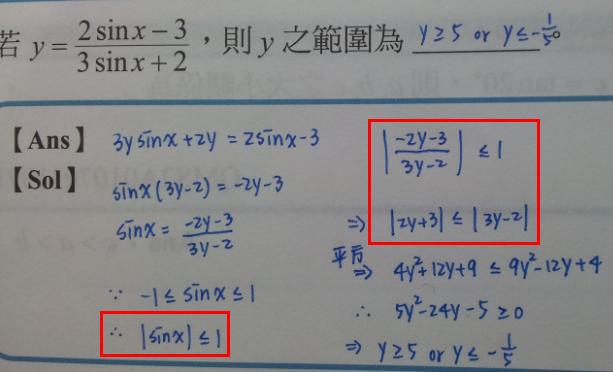 若 y = (2 sin x − 3)/(3 sin x + 2)，則 y 之範圍為 y ≥ 5 or y ≤ −1/5。
【Ans】 3y sin x + 2y = 2 sin x − 3
【Sol】 sin x (3y − 2) = −2y − 3
sin x = (−2y − 3)/(3y − 2)
∵ −1 ≤ sin x ≤ 1
∴ |sin x| ≤ 1
|(−2y − 3)/(3y − 2)| ≤ 1
⇒ |2y + 3| ≤ |3y − 2|
平方 ⇒ 4y² + 12y + 9 ≤ 9y² − 12y + 4
∴ 5y² − 24y − 5 ≥ 0
⇒ y ≥ 5 or y ≤ −1/5